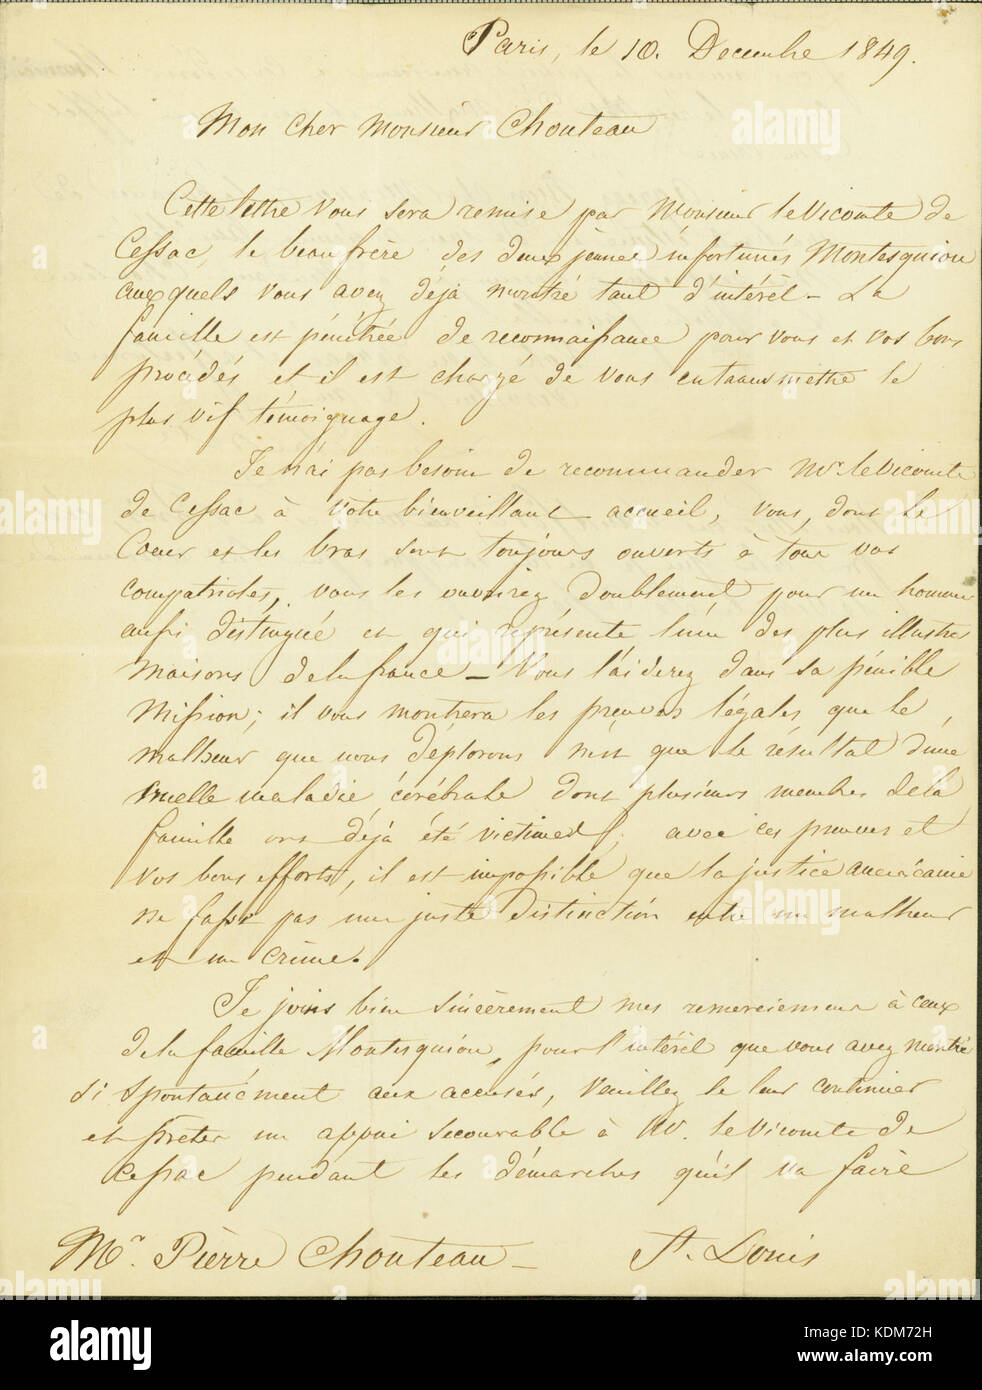 Paris, le 10. Decembre 1849.
Mon cher Monsieur Chouteau
Cette lettre vous sera remise par Monsieur le Vicomte de
Cessac, le beau frère des deux jeunes infortunés Montesquiou
auxquels vous avez déjà montré tant d'intérêt - La
famille est pénétrée de reconnaissance pour vous et vos bons
procédés et il est chargé de vous en transmettre le
plus vif témoignage.
Je n'ai pas besoin de recommander Mr. le Vicomte
de Cessac à votre bienveillant accueil, vous, dont le
Coeur et les bras sont toujours ouverts à tous vos
compatriotes, vous les ouvrirez doublement pour un homme
aussi distingué et qui représente l'une des plus illustres
maisons de la france - Vous l'aiderez dans sa pénible
mission; il vous montrera les preuves légales, que le
malheur que nous déplorons n'est que le résultat d'une
cruelle maladie cérébrale dont plusieurs membres de la
famille ont déjà été victimes; avec ces preuves et
vos bons efforts, il est impossible que la justice américaine
ne fasse pas une juste distinction entre un malheur
et un crime.
Je joins bien sincèrement mes remerciemens à ceux
de la famille Montesquiou, pour l'intérêt que vous avez montré
si spontanément aux accusés, veuillez le leur continuer
et prêter un appui secourable à M. le Vicomte de
Cessac pendant les démarches qu'il va faire
Mr. Pierre Chouteau - St. Louis
alamy
a
Image ID: KDM72H
www.alamy.com